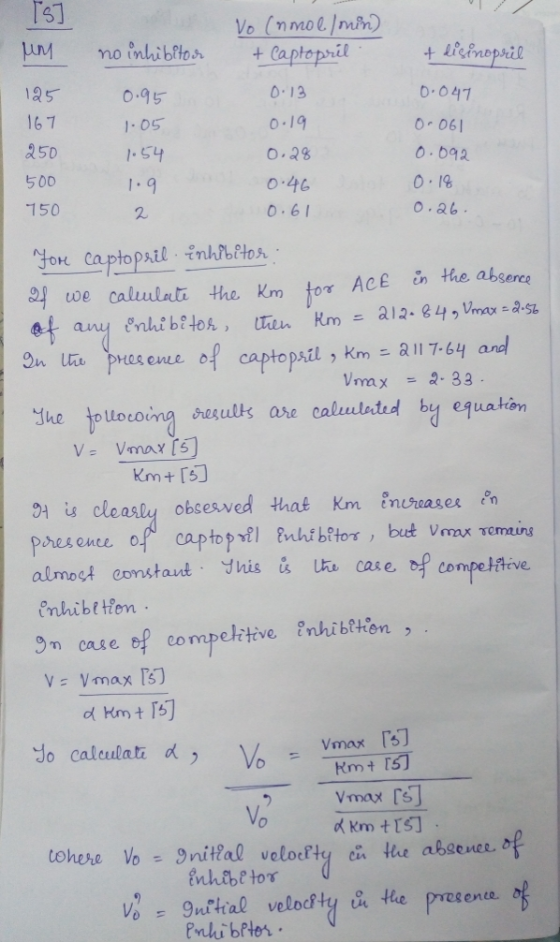 [S] Vo (nmol/min)
μM no inhibitor + Captopril + lisinopril
125 0.95 0.13 0.047
167 1.05 0.19 0.061
250 1.54 0.28 0.092
500 1.9 0.46 0.18
750 2 0.61 0.26.
For captopril inhibitor:
If we calculate the Km for ACE in the absence
of any inhibitor, then Km = 212.84, Vmax = 2.56
In the presence of captopril, Km = 2117.64 and
Vmax = 2.33.
The following results are calculated by equation
V = Vmax [S]
Km + [S]
It is clearly observed that Km increases in
presence of captopril inhibitor, but Vmax remains
almost constant. This is the case of competitive
inhibition.
In case of competitive inhibition,.
V = Vmax [S]
α Km + [S]
To calculate α, Vo = Vmax [S]
Km + [S]
Vo' Vmax [S]
α Km + [S].
where Vo = Initial velocity in the absence of
inhibitor
Vo' = Initial velocity in the presence of
inhibitor.